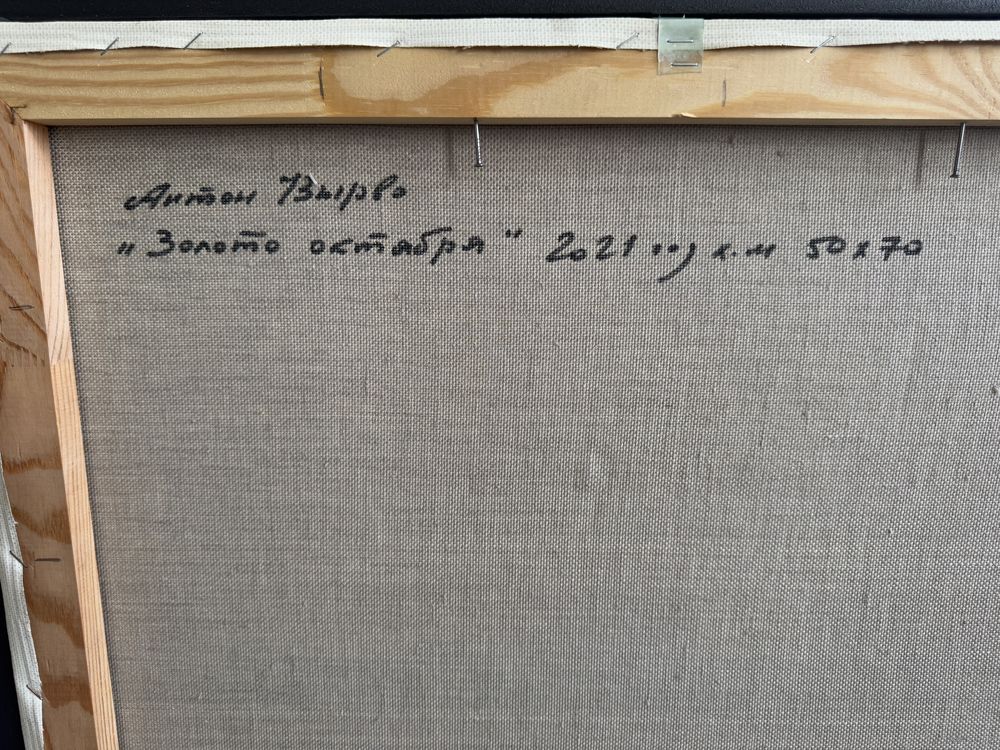 Антон Вырво
„Золото октября" 2021 год х.м 50x70